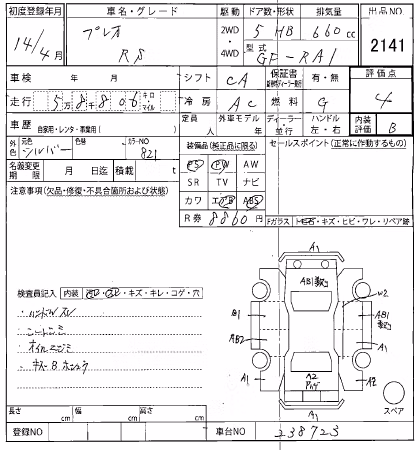 初度登録年月 車名・グレード 駆動 ドア数・形状 排気量 出品NO
14/4月 プレオ RS 2WD・4WD 5 HB 660cc 2141
型式 GF-RA1
車検 年 月 シフト CA 保証書 有・無 評価点
走行 5万8千806 キロ・マイル 冷房 AC 燃料 G 4
車歴 自家用・レンタ・事業用( ) 定員 人 外車モデル 年 ディーラー・並行 ハンドル 左・右 内装評価 B
外色 元色 シルバー 色替 カラーNO 821
装備品(純正品に限る) セールスポイント(正常に動作するもの)
名義変更期限 月 日迄 積載 t
PS PW AW
SR TV ナビ
カワ エアB ABS
R券 8860円
注意事項(欠品・修復・不具合箇所および状態)
Fガラス トビ石・キズ・ヒビ・ワレ・リペア跡
検査員記入 内装 ・キズ・キレ・コゲ・穴
ハンドルスレ
シートシミ
A1
AB1
W2
B1
AB1
AB2
A1
A1
A2
A2
A1
スペア
長さ cm 幅 cm 高さ cm
登録NO 車台NO 238723